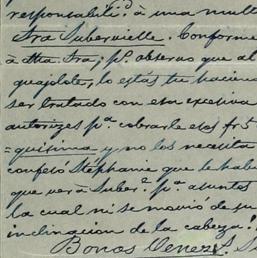 responsabilid.d à una mult
Sra Suberville. Conforme
à dha Sra, p.o observo que al
guajolote, lo estás tu hacien
ser tratado con esa excesiva
autorizes p.a cobrarle los fr 5
=quísima y no los necesita
confesó Stéphanie que le hab
que ver à Suber.e p.a asuntos
la cual ni se movió de su
inclinacion de la cabeza!
Bonos Venez.s.